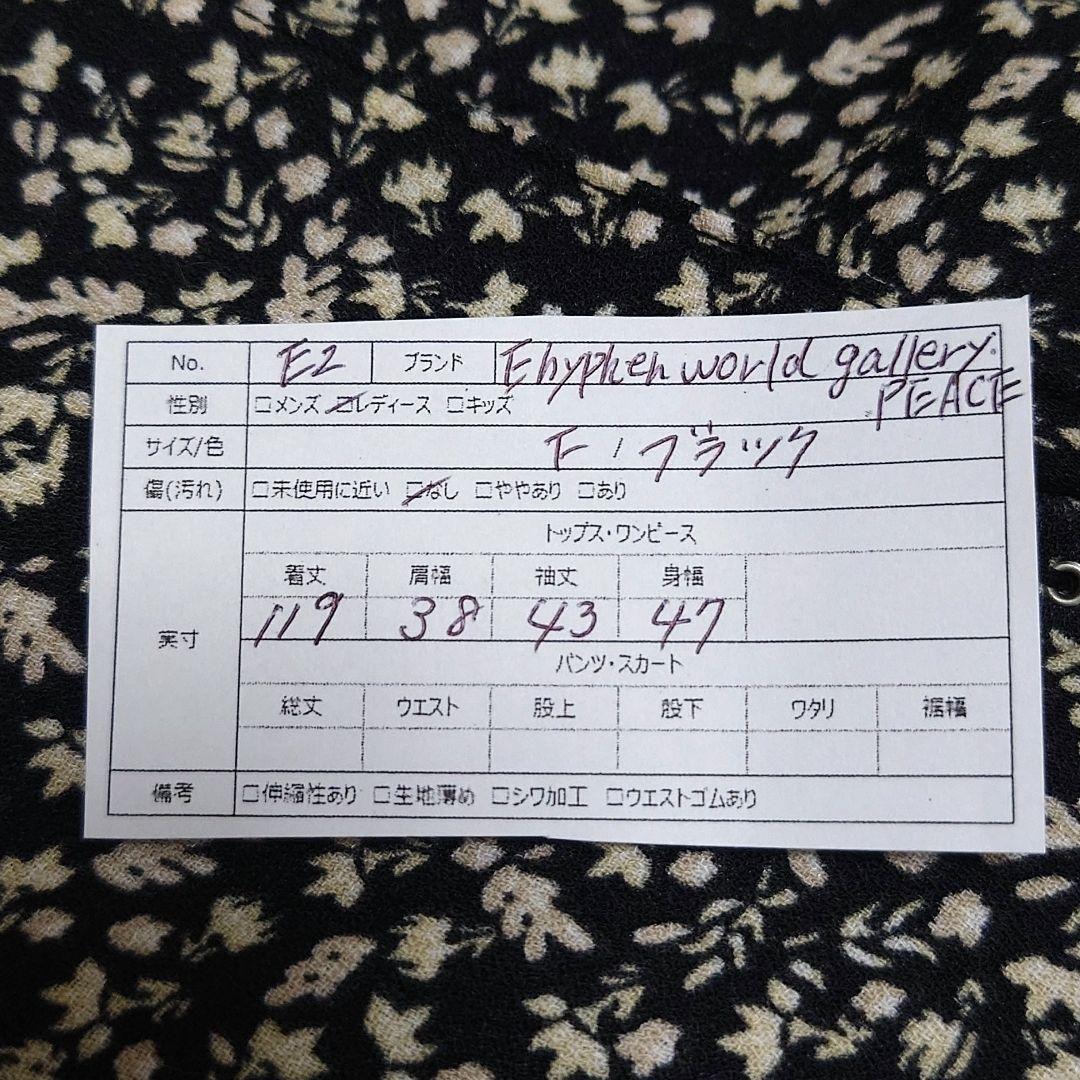 No. E2 ブランド Ehyphen world gallery
PEACE
性別 □メンズ ☑レディース □キッズ
サイズ/色 F / ブラック
傷(汚れ) □未使用に近い ☑なし □ややあり □あり
トップス・ワンピース
着丈 肩幅 袖丈 身幅
実寸 119 38 43 47
パンツ・スカート
総丈 ウエスト 股上 股下 ワタリ 裾幅
備考 □伸縮性あり □生地薄め □シワ加工 □ウエストゴムあり